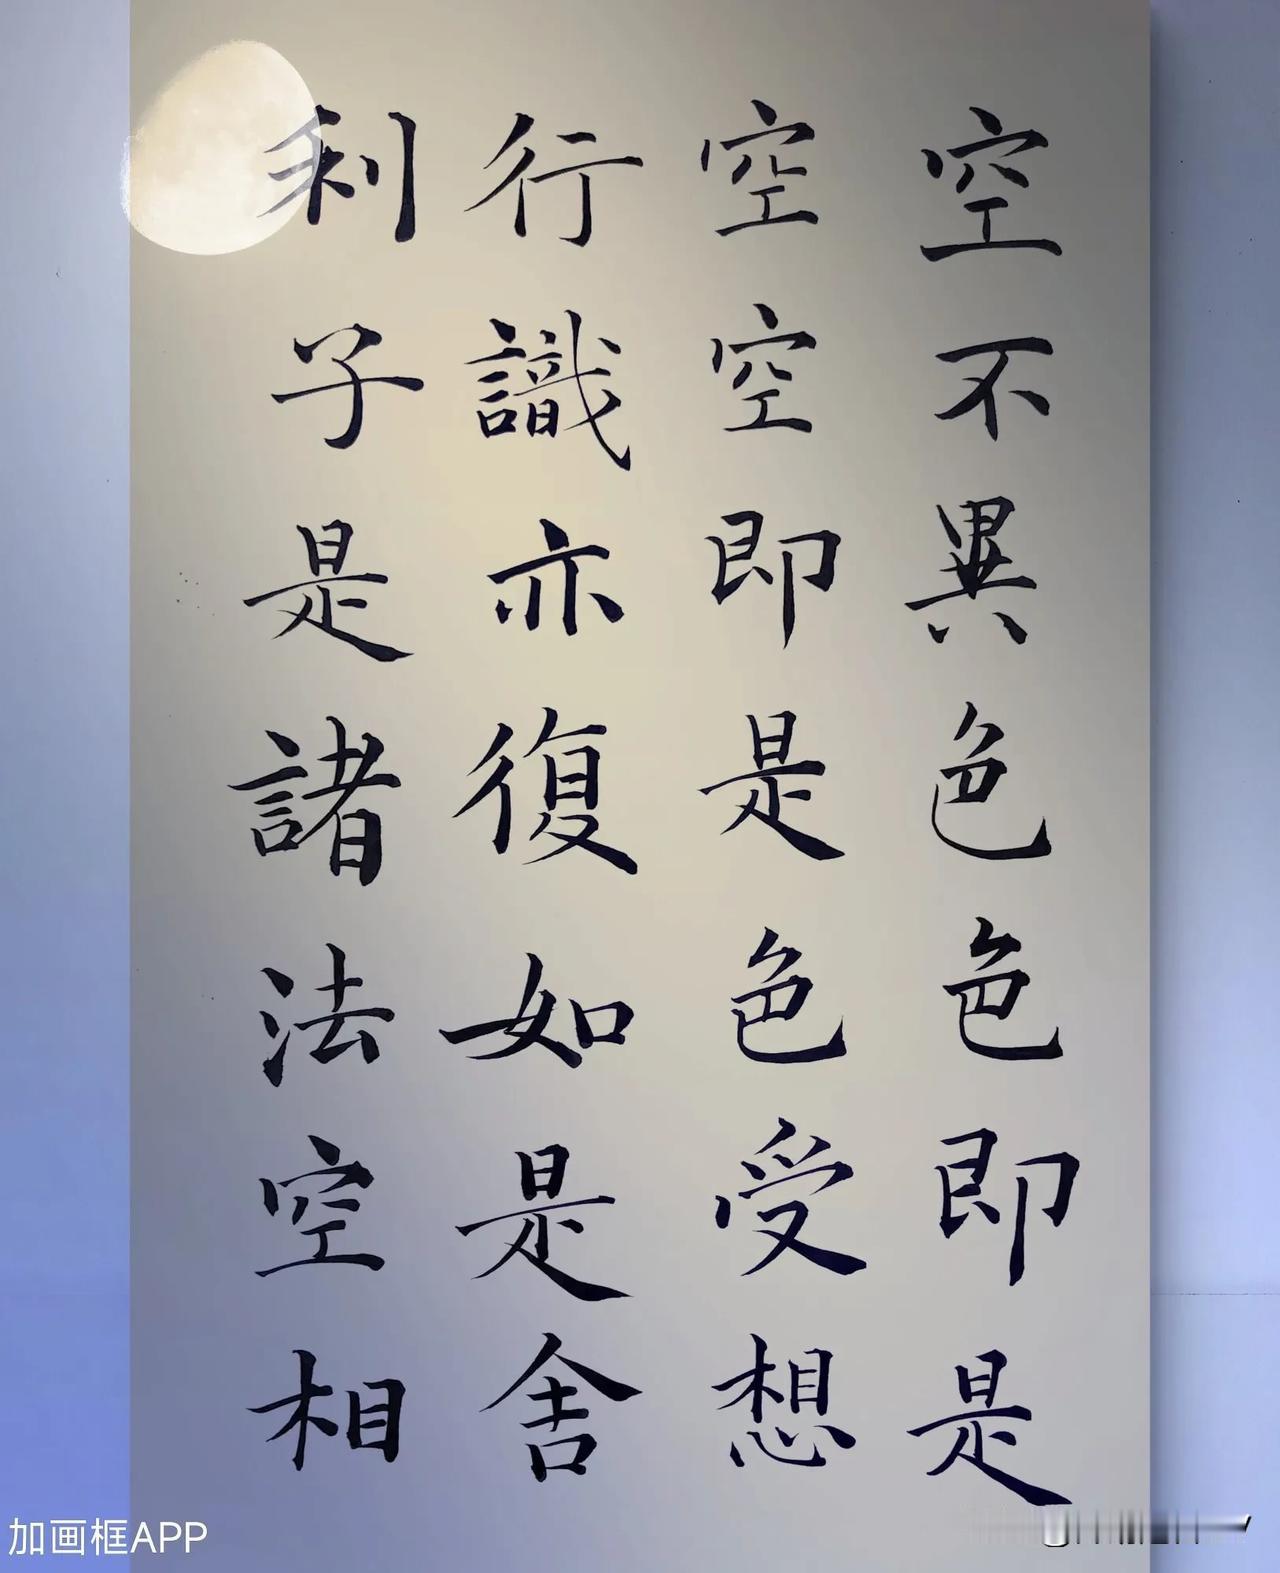 空不異色色即是
空空即是色受想
行識亦復如是舍
利子是諸法空相
加画框APP